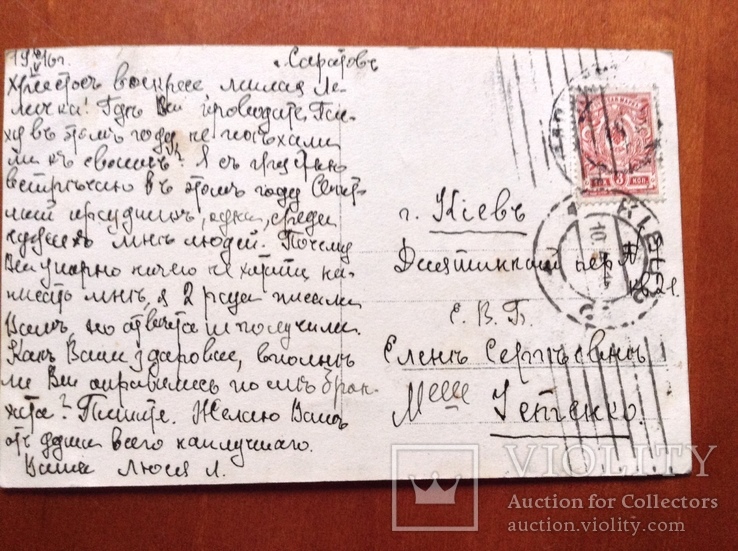 19 16 г. Саратовъ
Христосъ воскресе, милая Ле-
личка! Гдѣ Вы проводите Пас-
ху въ этомъ году, не поѣхали
ли къ своимъ? Я съ грустью
встрѣчаю въ этомъ году Свѣт-
лый праздникъ, одна, среди
чужихъ мнѣ людей. Почему
Вы упорно ничего не хотите на-
писать мнѣ, я 2 раза писала
Вамъ, но отвѣта не получила.
Какъ Ваше здоровье, вполнѣ
ли Вы оправились послѣ брон-
хита? Пишите. Желаю Вамъ
отъ души всего наилучшаго.
Ваша Люся Л.
г. Кіевъ
Десятинный пер. №
кв. 21.
Е. В. Б.
Еленѣ Сергѣевнѣ
3 КОП.
КІЕВЪ
10.
VIOLITY
Auction for Collectors
auction.violity.com